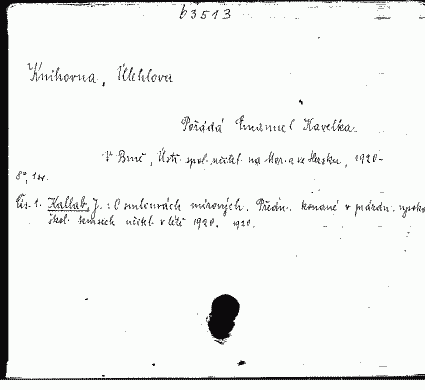 b3513
Knihovna, Úlehlova
Pořádá Emanuel Havelka.
V Brně, Ústř. spol. učitel. na Mor. a ve Slezsku, 1920-
8°, 1 sv.
Čís. 1. Kallab, J.: O smlouvách mírových. Předn. konané v prázdn. vysoko
škol. kursech učitel. v létě 1920. 1920.